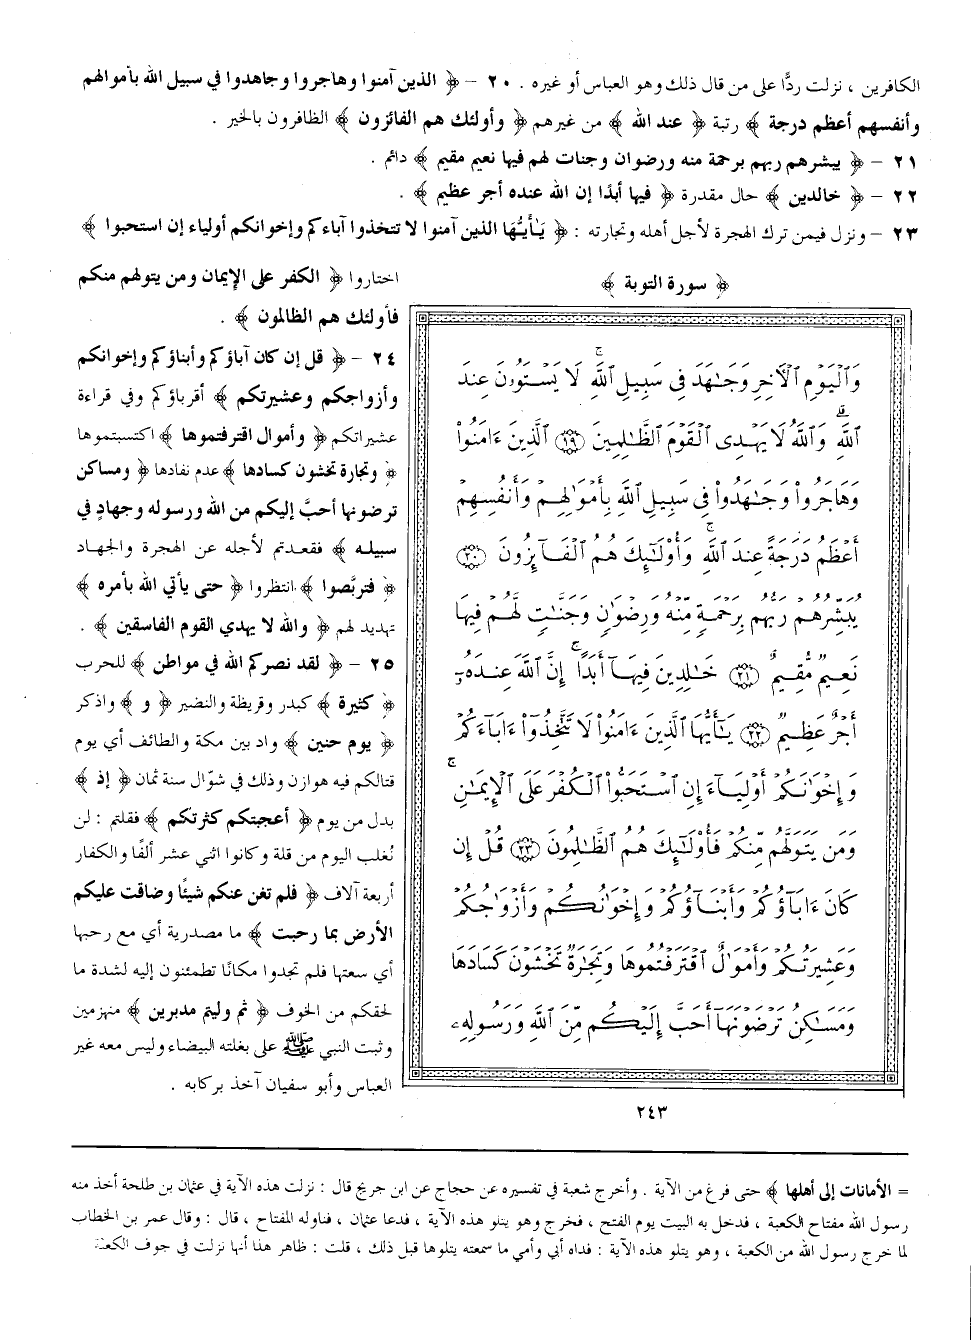 الكافرين ، نزلت ردًّا على من قال ذلك وهو العباس أو غيره . ٢٠ – ﴿ الذين آمنوا وهاجروا وجاهدوا في سبيل الله بأموالهم
وأنفسهم أعظم درجة ﴾ رتبة ﴿ عند الله ﴾ من غيرهم ﴿ وأولئك هم الفائزون ﴾ الظافرون بالخير .
٢١ – ﴿ يبشرهم ربهم برحمة منه ورضوان وجنات لهم فيها نعيم مقيم ﴾ دائم .
٢٢ – ﴿ خالدين ﴾ حال مقدرة ﴿ فيها أبدًا إن الله عنده أجر عظيم ﴾ .
٢٣ – ونزل فيمن ترك الهجرة لأجل أهله وتجارته : ﴿ يَٰأَيُّهَا الذين آمنوا لا تتخذوا آباءكم وإخوانكم أولياء إن استحبوا ﴾
﴿ سورة التوبة ﴾
وَٱلۡيَوۡمِ ٱلۡأٓخِرِ وَجَٰهَدَ فِي سَبِيلِ ٱللَّهِۚ لَا يَسۡتَوُۥنَ عِندَ
ٱللَّهِۗ وَٱللَّهُ لَا يَهۡدِي ٱلۡقَوۡمَ ٱلظَّٰلِمِينَ ١٩ ٱلَّذِينَ ءَامَنُواْ
وَهَاجَرُواْ وَجَٰهَدُواْ فِي سَبِيلِ ٱللَّهِ بِأَمۡوَٰلِهِمۡ وَأَنفُسِهِمۡ
أَعۡظَمُ دَرَجَةً عِندَ ٱللَّهِۚ وَأُوْلَٰٓئِكَ هُمُ ٱلۡفَآئِزُونَ ٢٠
يُبَشِّرُهُمۡ رَبُّهُم بِرَحۡمَةٖ مِّنۡهُ وَرِضۡوَٰنٖ وَجَنَّٰتٖ لَّهُمۡ فِيهَا
نَعِيمٞ مُّقِيمٌ ٢١ خَٰلِدِينَ فِيهَآ أَبَدًاۚ إِنَّ ٱللَّهَ عِندَهُۥٓ
أَجۡرٌ عَظِيمٞ ٢٢ يَٰٓأَيُّهَا ٱلَّذِينَ ءَامَنُواْ لَا تَتَّخِذُوٓاْ ءَابَآءَكُمۡ
وَإِخۡوَٰنَكُمۡ أَوۡلِيَآءَ إِنِ ٱسۡتَحَبُّواْ ٱلۡكُفۡرَ عَلَى ٱلۡإِيمَٰنِۚ
وَمَن يَتَوَلَّهُم مِّنكُمۡ فَأُوْلَٰٓئِكَ هُمُ ٱلظَّٰلِمُونَ ٢٣ قُلۡ إِن
كَانَ ءَابَآؤُكُمۡ وَأَبۡنَآؤُكُمۡ وَإِخۡوَٰنُكُمۡ وَأَزۡوَٰجُكُمۡ
وَعَشِيرَتُكُمۡ وَأَمۡوَٰلٌ ٱقۡتَرَفۡتُمُوهَا وَتِجَٰرَةٞ تَخۡشَوۡنَ كَسَادَهَا
وَمَسَٰكِنُ تَرۡضَوۡنَهَآ أَحَبَّ إِلَيۡكُم مِّنَ ٱللَّهِ وَرَسُولِهِۦ
٢٤٣
اختاروا ﴿ الكفر على الإيمان ومن يتولهم منكم
فأولئك هم الظالمون ﴾ .
٢٤ – ﴿ قل إن كان آباؤكم وأبناؤكم وإخوانكم
وأزواجكم وعشيرتكم ﴾ أقرباؤكم وفي قراءة
عشيراتكم ﴿ وأموال اقترفتموها ﴾ اكتسبتموها
﴿ وتجارة تخشون كسادها ﴾ عدم نفادها ﴿ ومساكن
ترضونها أحبَّ إليكم من الله ورسوله وجهادٍ في
سبيله ﴾ فقعدتم لأجله عن الهجرة والجهاد
﴿ فتربَّصوا ﴾ انتظروا ﴿ حتى يأتي الله بأمره ﴾
تهديد لهم ﴿ والله لا يهدي القوم الفاسقين ﴾ .
٢٥ – ﴿ لقد نصركم الله في مواطن ﴾ للحرب
﴿ كثيرة ﴾ كبدر وقريظة والنضير ﴿ و ﴾ واذكر
﴿ يوم حنين ﴾ واد بين مكة والطائف أي يوم
قتالكم فيه هوازن وذلك في شوّال سنة ثمان ﴿ إذ ﴾
بدل من يوم ﴿ أعجبتكم كثرتكم ﴾ فقلتم : لن
نُغلب اليوم من قلة وكانوا اثني عشر ألفًا والكفار
أربعة آلاف ﴿ فلم تغن عنكم شيئًا وضاقت عليكم
الأرض بما رحبت ﴾ ما مصدرية أي مع رحبها
أي سعتها فلم تجدوا مكانًا تطمئنون إليه لشدة ما
لحقكم من الخوف ﴿ ثم وليتم مدبرين ﴾ منهزمين
وثبت النبي ﷺ على بغلته البيضاء وليس معه غير
العباس وأبو سفيان آخذ بركابه .
= الأمانات إلى أهلها ﴾ حتى فرغ من الآية . وأخرج شعبة في تفسيره عن حجاج عن ابن جريج قال : نزلت هذه الآية في عثمان بن طلحة أخذ منه
رسول الله مفتاح الكعبة ، فدخل به البيت يوم الفتح ، فخرج وهو يتلو هذه الآية ، فدعا عثمان ، فناوله المفتاح ، قال : وقال عمر بن الخطاب
لما خرج رسول الله من الكعبة ، وهو يتلو هذه الآية : فداه أبي وأمي ما سمعته يتلوها قبل ذلك ، قلت : ظاهر هذا أنها نزلت في جوف الكعبة